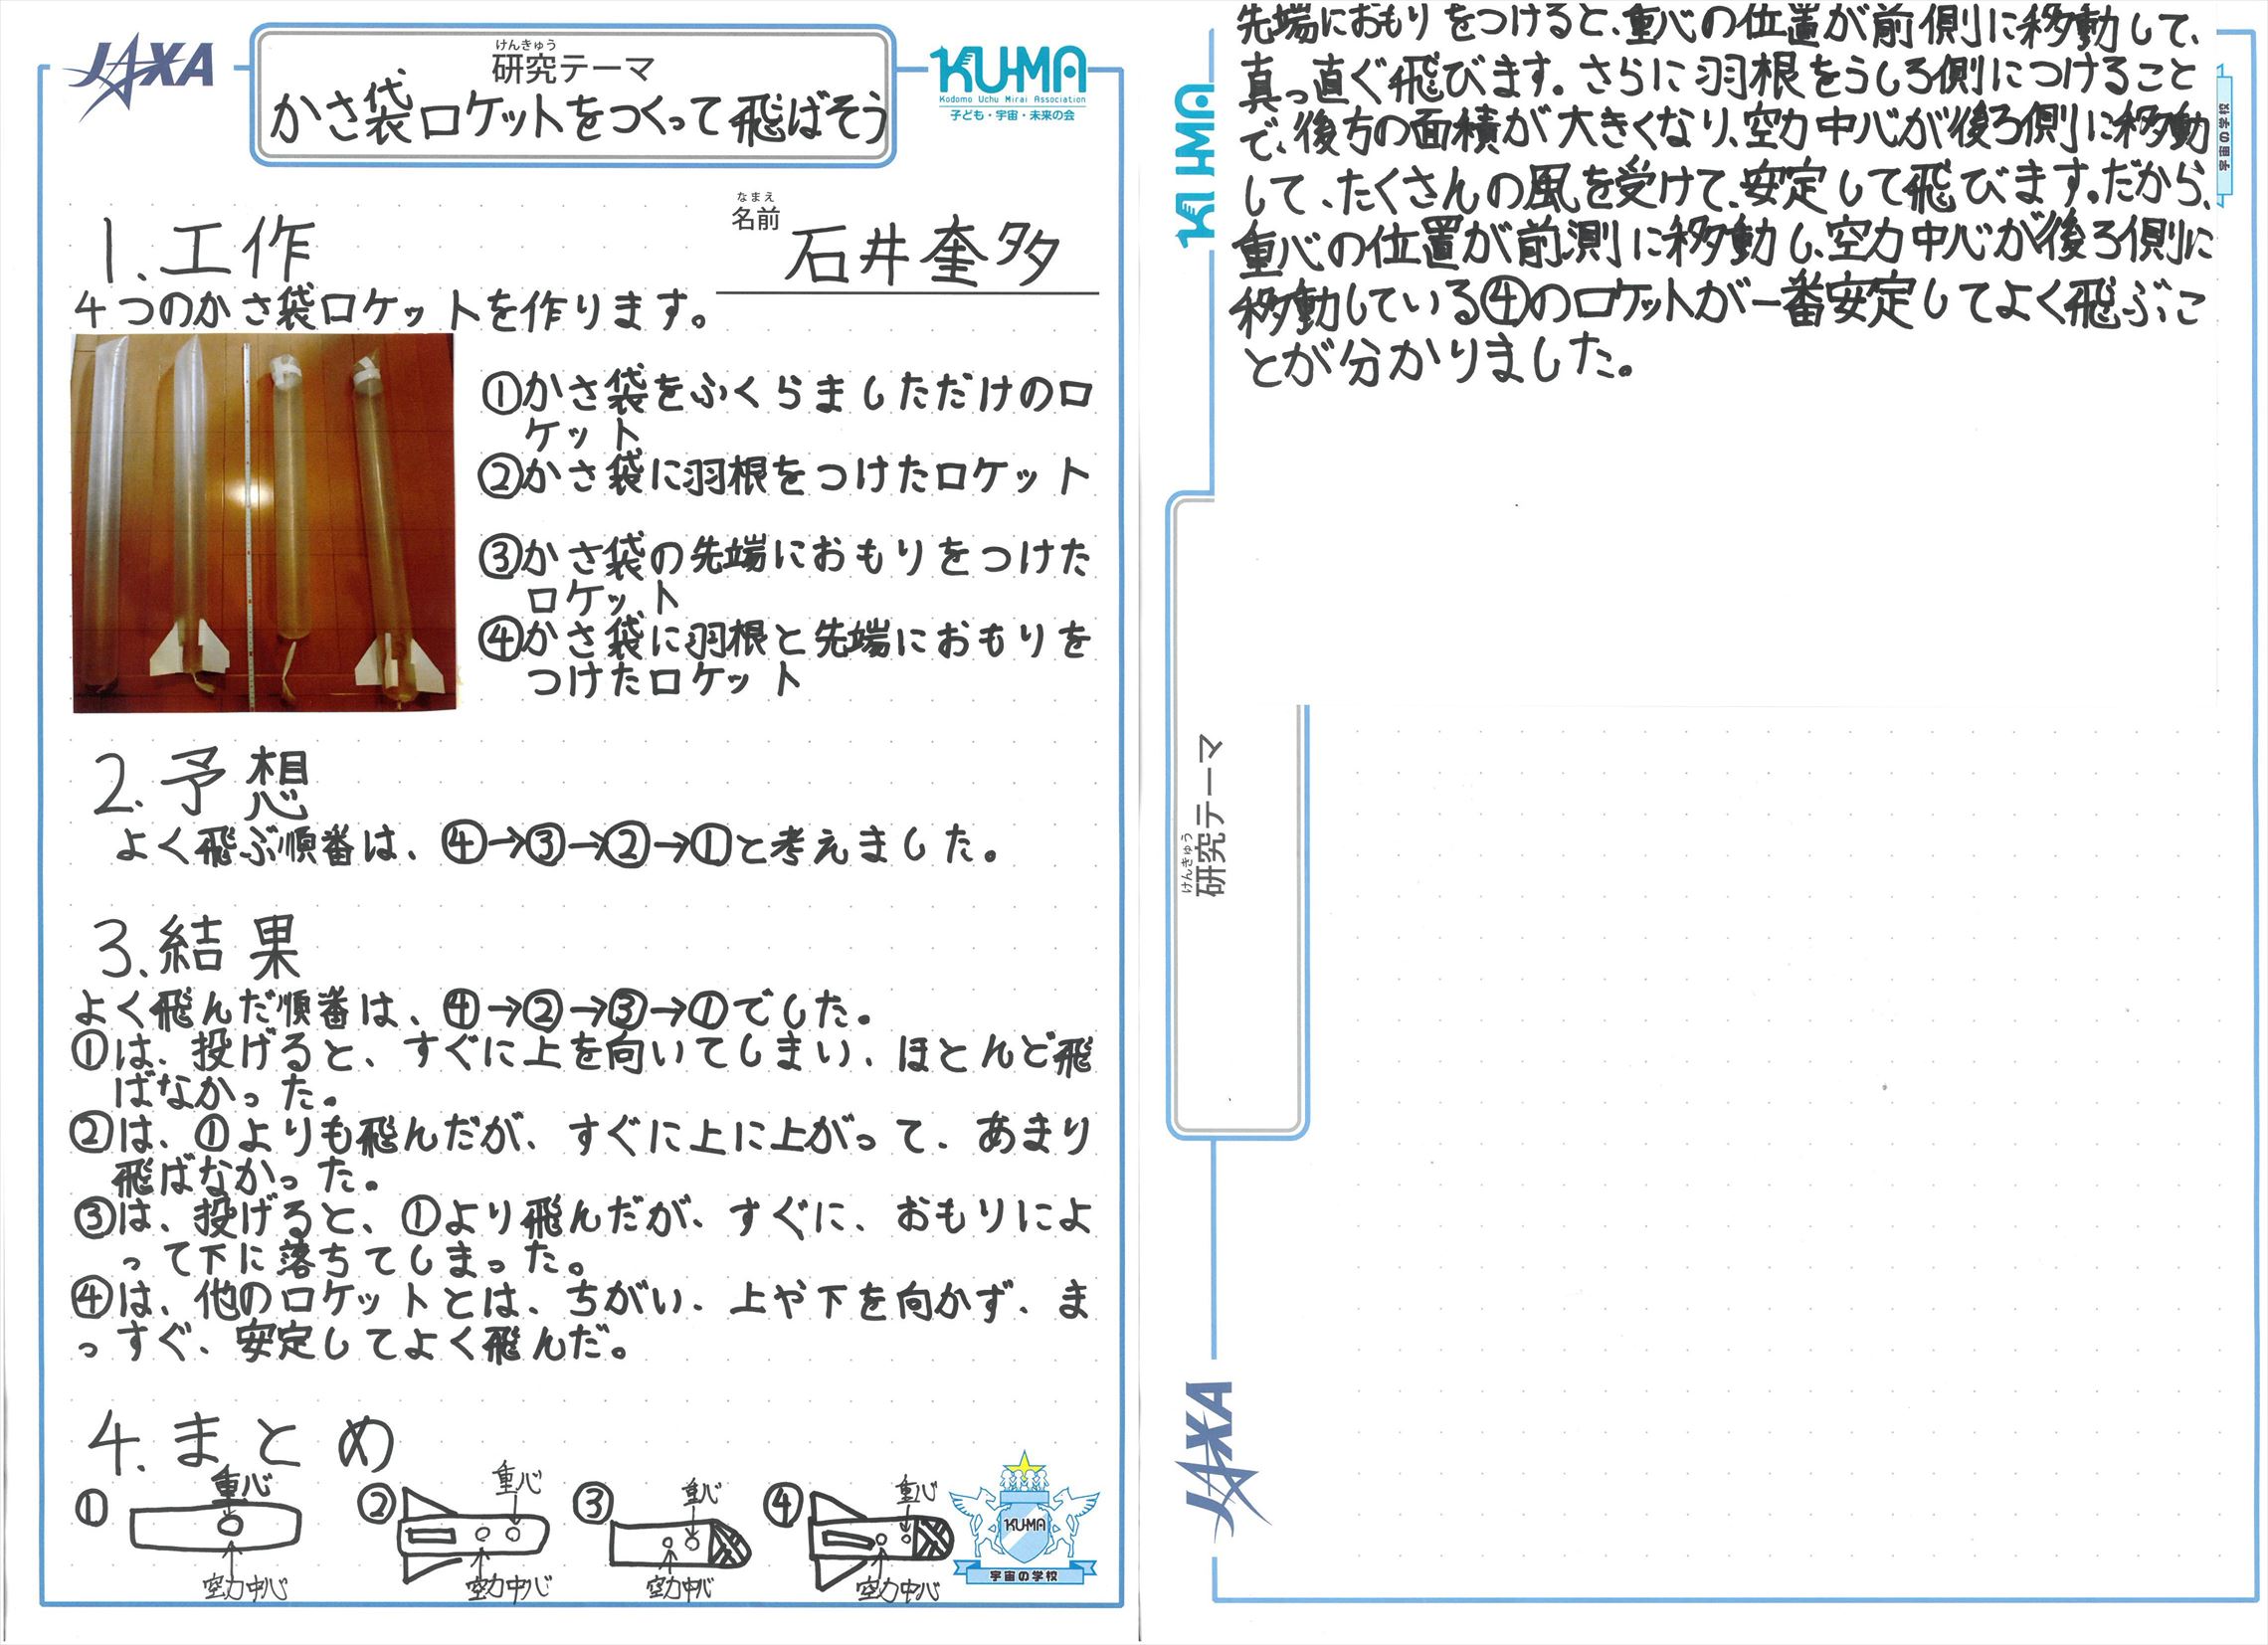 JAXA
けんきゅう
研究テーマ
かさ袋ロケットをつくって飛ばそう
KU-MA
Kodomo Uchu Mirai Association
子ども・宇宙・未来の会
なまえ
名前
石井奎多
1.工作
4つのかさ袋ロケットを作ります。
①かさ袋をふくらましただけのロ
ケット
②かさ袋に羽根をつけたロケット
③かさ袋の先端におもりをつけた
ロケット
④かさ袋に羽根と先端におもりを
つけたロケット
2.予想
よく飛ぶ順番は、④→③→②→①と考えました。
3.結果
よく飛んだ順番は、④→②→③→①でした。
①は、投げると、すぐに上を向いてしまい、ほとんど飛
ばなかった。
②は、①よりも飛んだが、すぐに上に上がって、あまり
飛ばなかった。
③は、投げると、①より飛んだが、すぐに、おもりによ
って下に落ちてしまった。
④は、他のロケットとは、ちがい、上や下を向かず、ま
っすぐ、安定してよく飛んだ。
4.まとめ
① 重心
空力中心
② 重心
空力中心
③ 重心
空力中心
④ 重心
空力中心
KU-MA
宇宙の学校
先端におもりをつけると、重心の位置が前側に移動して、
真っ直ぐ飛びます。さらに羽根をうしろ側につけること
で、後方の面積が大きくなり、空力中心が後ろ側に移動
して、たくさんの風を受けて、安定して飛びます。だから、
重心の位置が前測に移動し、空力中心が後ろ側に
移動している④のロケットが一番安定してよく飛ぶこ
とが分かりました。
KU-MA
宇宙の学校
けんきゅう
研究テーマ
JAXA